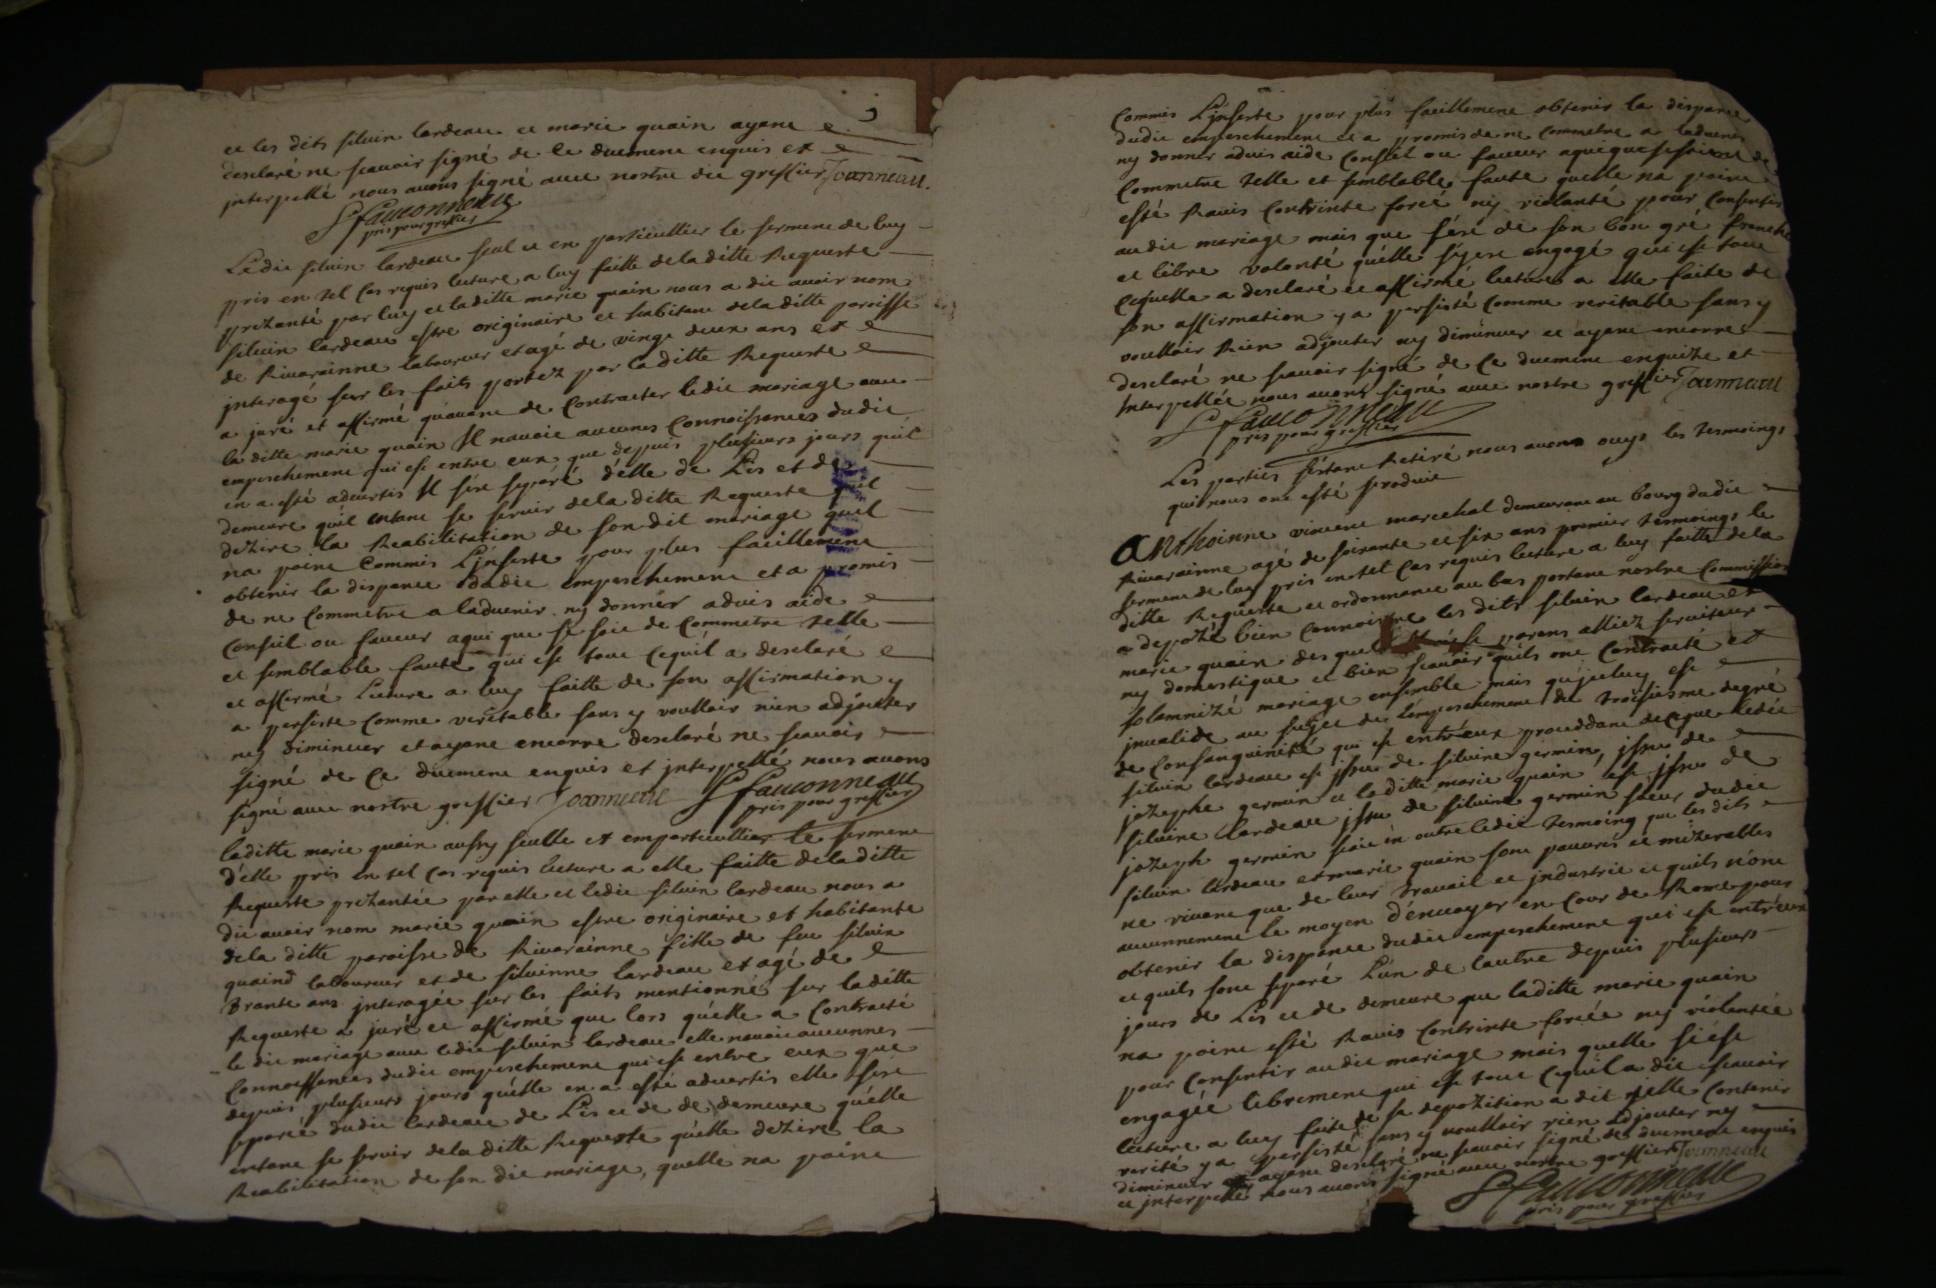 et les dits siluin lardeau et marie quain ayant
desclaré ne scauoir signé de ce duement enquis et
interpellé nous auons signé auec nostre dit greffier Joanneau.
S fauconneau
pris pour greffier
Ledit siluin lardeau seul et en particullier le serment de luy
pris en tel cas requis lecture a luy faitte de la ditte Requeste
prezanté par luy et laditte marie quain nous a dit auoir nom
siluin lardeau estre originaire et habitant de la ditte paroisse
de Riuarainne laboureur et agé de vingt deux ans et
interogé sur les faits portez par laditte Requeste
a juré et affirmé quauant de contracter ledit mariage auec
la ditte marie quain Il nauoit aucunes connoissances dudit
empeschement qui est entre eux que depuis plusieurs jours quil
en a esté aduertis Il sest separé d'elle de Lis et de
demeure quil entant se seruir de la ditte Requeste quil
dezire la Reabilitation de son dit mariage quil
na point commis L'jnseste pour plus facillement
obtenir la dispance dudit empeschement et a promis
de ne commetre a laduenir ny donner aduis aide
conseil ou faueur aqui que se soit de commetre telle
et semblable faute qui est tout cequil a desclaré
et affirmé Lecture a luy faitte de son affirmation y
a persiste comme veritable sans y voulloir rien adjouter
ny diminuer et ayant encorre desclaré ne scauoir
signé de ce duement enquis et jnterpellé nous auons
signé auec nostre greffier Joanneau S fauconneau
pris pour greffier
laditte marie quain aussy seulle et emparticullier le serment
d'elle pris en tel cas requis lecture a elle faitte de laditte
Requeste prezantée par elle et ledit siluin lardeau nous a
dit auoir nom marie quain estre originaire et habitante
de la ditte paroisse de Riuarainne fille de feu siluin
quaind laboureur et de siluinne lardeau et agé de
trante ans jnterogée sur les faits mentionné sur laditte
Requeste a juré et affirmé que lors quelle a contracté
le dit mariage auec ledit siluin lardeau elle nauoit aucunnes
connoissances dudit empeschement qui est entre eux que
depuis plusieurs jours quelle en a esté aduertis elle sest
separée dudit lardeau de Lis et de de demeure quélle
entant se seruir de la ditte Requeste quélle dezire la
Reabilitation de son dit mariage, quelle na point
commis L'jnseste pour plus facillement obtenir la dispance
dudit empeschement et a promis de ne commetre a laduenir
ny donner aduis aide conseil ou faueur aquique se soient de
commetre telle et semblable faute quelle na point
esté Rauis contrinte forcé ny violanté pour consentir
audit mariage mais que sest de son bon gré franche
et libre volonté quélle sy est engagé qui est tout
cequelle a desclaré et affirmé lecture a elle faite de
son affirmation y a persisté comme veritable sans y
voulloir Rien adjouter ny diminuer et ayant encorre
desclaré ne scauoir signé de ce duement enquize et
Interpellée nous auons signé auec nostre greffier Joanneau
S fauconneau
pris pour greffier
Les parties sestant Retiré nous auons ouys les tesmoings
qui nous ont esté produit
anthoinne vincent marechal demeurant au bourg dudit
Riuarainne agé de soixante et six ans premier tesmoings le
serment de luy pris en tel cas requis lecture a luy faitte de la
ditte Requeste et ordonnance au bas portant nostre commission
a depozé bien connoistre les dits siluin lardeau et
marie quain des quels parans alliez seruiteur
ny domestique et bien scauoir quils ont contracté et
solamnizé mariage ensemble mais quiceluy est
jnualide au sujet de l'empeschement du troisiesme degré
de consanguinité qui est entreux proceddant de ceque ledit
siluin lardeau est jssu de siluine germin, jssu de
jozephe germin et laditte marie quain est jssu de
siluine lardeau jssu de siluine germin soeur dudit
jozeph germin scait en outre ledit tesmoing que les dits
siluin lardeau et marie quain sont pauures et mizerables
ne viuant que de leur trauail et jndustrie et quils nont
aucunnement le moyen d'enuoyer en cour de Rome pour
obtenir la dispance dudit empeschement qui est entreux
et quils sont separé L'un de lautre depuis plusieurs
jours de Lis et de demeure que laditte marie quain
na point esté Rauis contrinte forcée ny violantée
pour consentir audit mariage mais quelle si est
engagée librement qui est tout cequil a dit scauoir
lecture a luy faite de se depozition a dit quelle contenir
verité y a persisté sans y voulloir rien adjouter ny
diminuer ayant desclaré ne scauoir signé de duement enquis
et jnterpellé nous auons signé auec nostre greffier Joanneau
S fauconneau
pris pour greffier